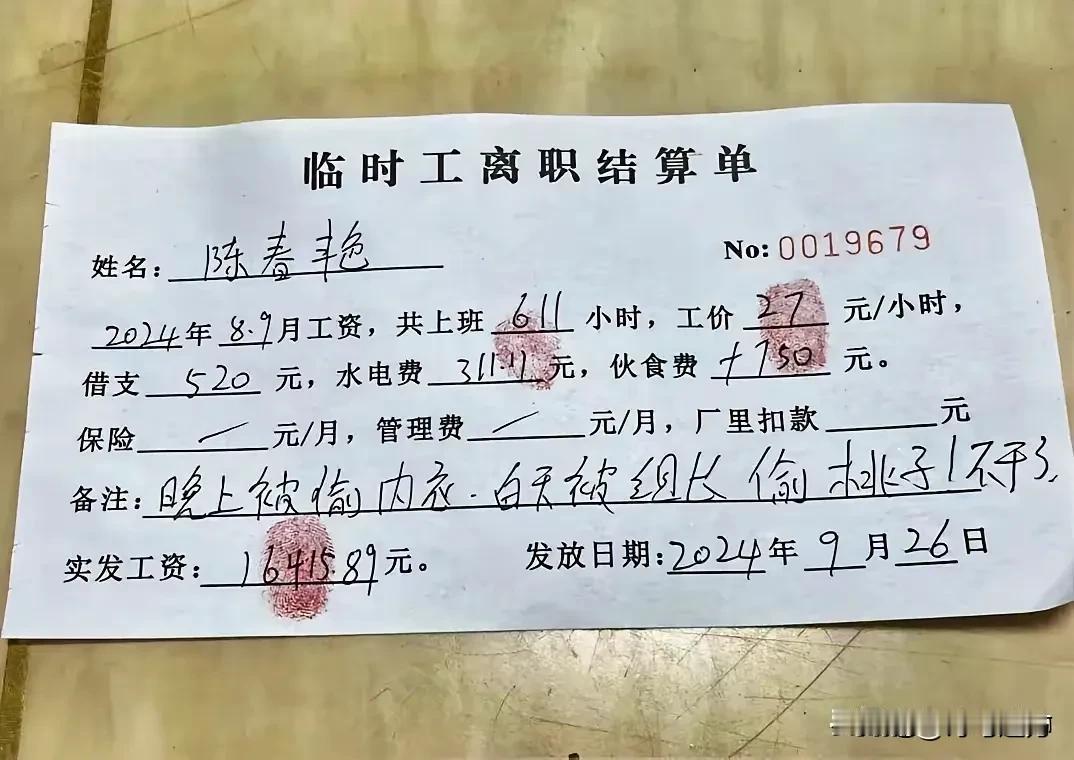 临时工离职结算单
姓名：陈春艳 No: 0019679
2024年8.9月工资，共上班611小时，工价27元/小时，
借支520元，水电费311.11元，伙食费+750元。
保险/元/月，管理费/元/月，厂里扣款元
备注：晚上被偷内衣.白天被组长偷桃子!不干了.
实发工资：16415.89元。 发放日期：2024年9月26日